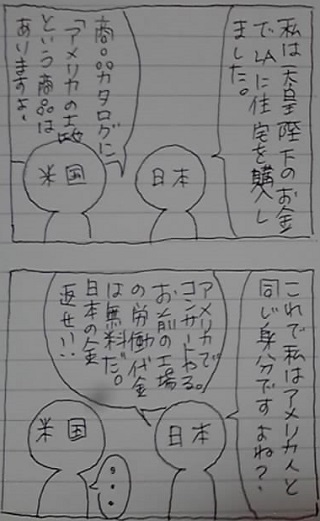 私は天皇陛下のお金
でLAに住宅を購入し
ました。
商品カタログに
「アメリカの土地」
という商品は
ありますよ。
米国
日本
これで私はアメリカ人と
同じ身分ですよね？
アメリカで
コンサートやる。
お前の工場
の労働代金
は無料だ。
日本の金
返せ！！
米国
日本
・・・